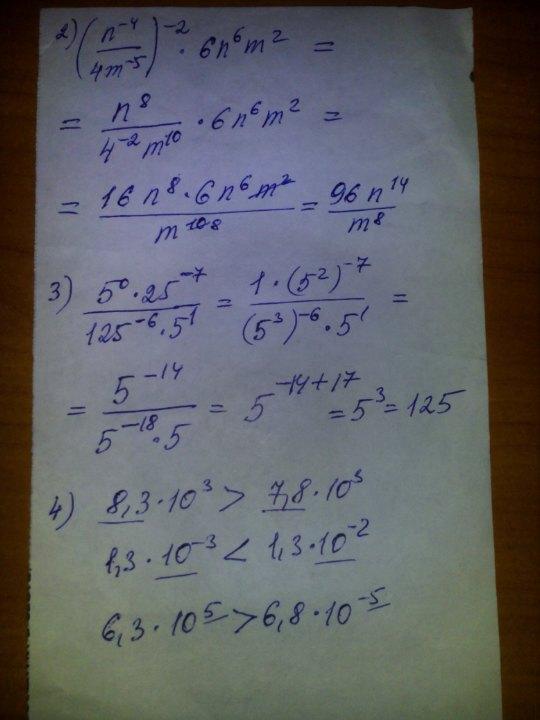 2) (n⁻⁴/4m⁻⁵)⁻² · 6n⁶m² =
= n⁸/4⁻²m¹⁰ · 6n⁶m² =
= 16n⁸·6n⁶m²/m¹⁰ ⁸ = 96n¹⁴/m⁸
3) 5⁰·25⁻⁷/125⁻⁶·5¹ = 1·(5²)⁻⁷/(5³)⁻⁶·5¹ =
= 5⁻¹⁴/5⁻¹⁸·5 = 5⁻¹⁴⁺¹⁷ = 5³ = 125
4) 8,3·10³ > 7,8·10³
1,3·10⁻³ < 1,3·10⁻²
6,3·10⁵ > 6,8·10⁻⁵